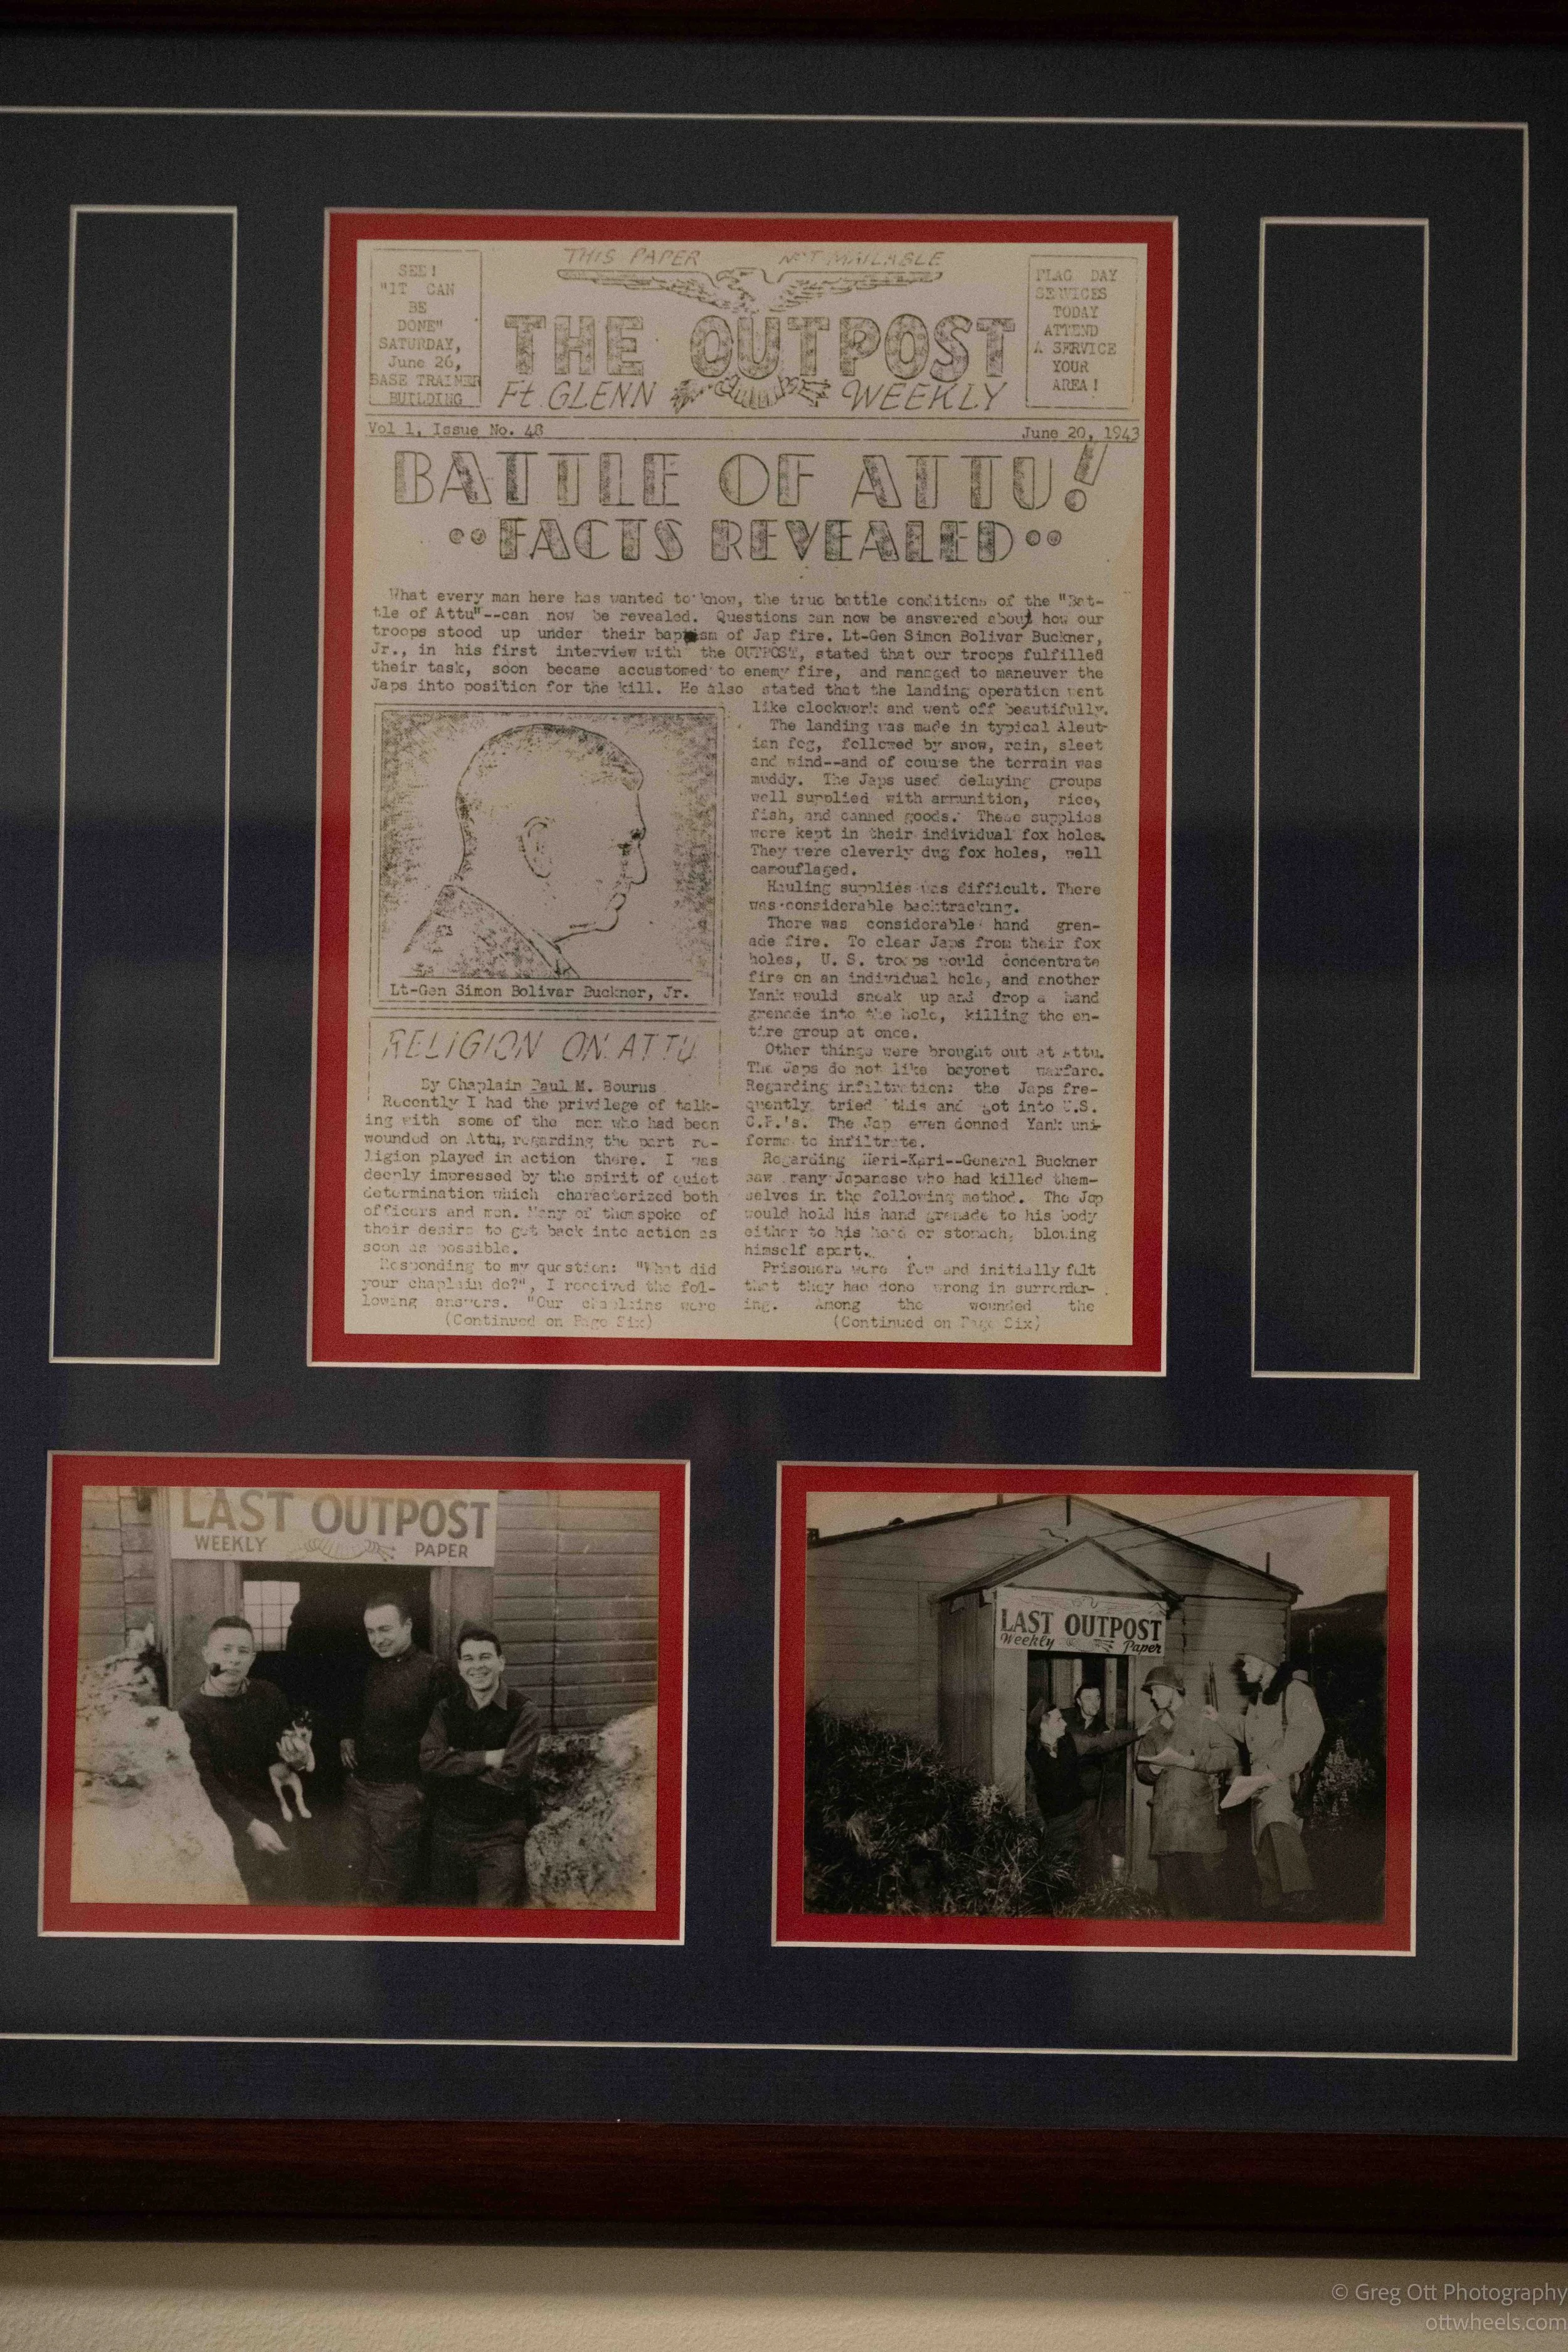 THIS PAPER NOT MAILABLE
SEE!
"IT CAN
BE
DONE"
SATURDAY,
June 26,
BASE TRAINER
BUILDING
THE OUTPOST
Ft. GLENN WEEKLY
FLAG DAY
SERVICES
TODAY
ATTEND
A SERVICE
YOUR
AREA!
Vol 1, Issue No. 48
June 20, 1943
BATTLE OF ATTU!
FACTS REVEALED
What every man here has wanted to know, the true battle conditions of the "Bat-
tle of Attu"--can now be revealed. Questions can now be answered about how our
troops stood up under their baptism of Jap fire. Lt-Gen Simon Bolivar Buckner,
Jr., in his first interview with the OUTPOST, stated that our troops fulfilled
their task, soon became accustomed to enemy fire, and managed to maneuver the
Japs into position for the kill. He also stated that the landing operation went
like clockwork and went off beautifully.
The landing was made in typical Aleut-
ian fog, followed by snow, rain, sleet
and wind--and of course the terrain was
muddy. The Japs used delaying groups
well supplied with ammunition, rice,
fish, and canned goods. These supplies
were kept in their individual fox holes.
They were cleverly dug fox holes, well
camouflaged.
Hauling supplies was difficult. There
was considerable backtracking.
There was considerable hand gren-
ade fire. To clear Japs from their fox
holes, U. S. troops would concentrate
fire on an individual hole, and another
Yank would sneak up and drop a hand
grenade into the hole, killing the en-
tire group at once.
Other things were brought out at Attu.
The Japs do not like bayonet warfare.
Regarding infiltration: the Japs fre-
quently tried this and got into U.S.
C.P.'s. The Jap even donned Yank uni-
forms to infiltrate.
Regarding Hari-Kari--General Buckner
saw many Japanese who had killed them-
selves in the following method. The Jap
would hold his hand grenade to his body
either to his head or stomach, blowing
himself apart.
Prisoners were few and initially felt
that they had done wrong in surrender-
ing. Among the wounded the
(Continued on Page Six)
Lt-Gen Simon Bolivar Buckner, Jr.
RELIGION ON ATTU
By Chaplain Paul M. Bourns
Recently I had the privilege of talk-
ing with some of the men who had been
wounded on Attu, regarding the part re-
ligion played in action there. I was
deeply impressed by the spirit of quiet
determination which characterized both
officers and men. Many of them spoke of
their desire to get back into action as
soon as possible.
Responding to my question: "What did
your chaplain do?", I received the fol-
lowing answers. "Our chaplains were
(Continued on Page Six)
LAST OUTPOST
WEEKLY PAPER
LAST OUTPOST
Weekly Paper
© Greg Ott Photography
ottwheels.com